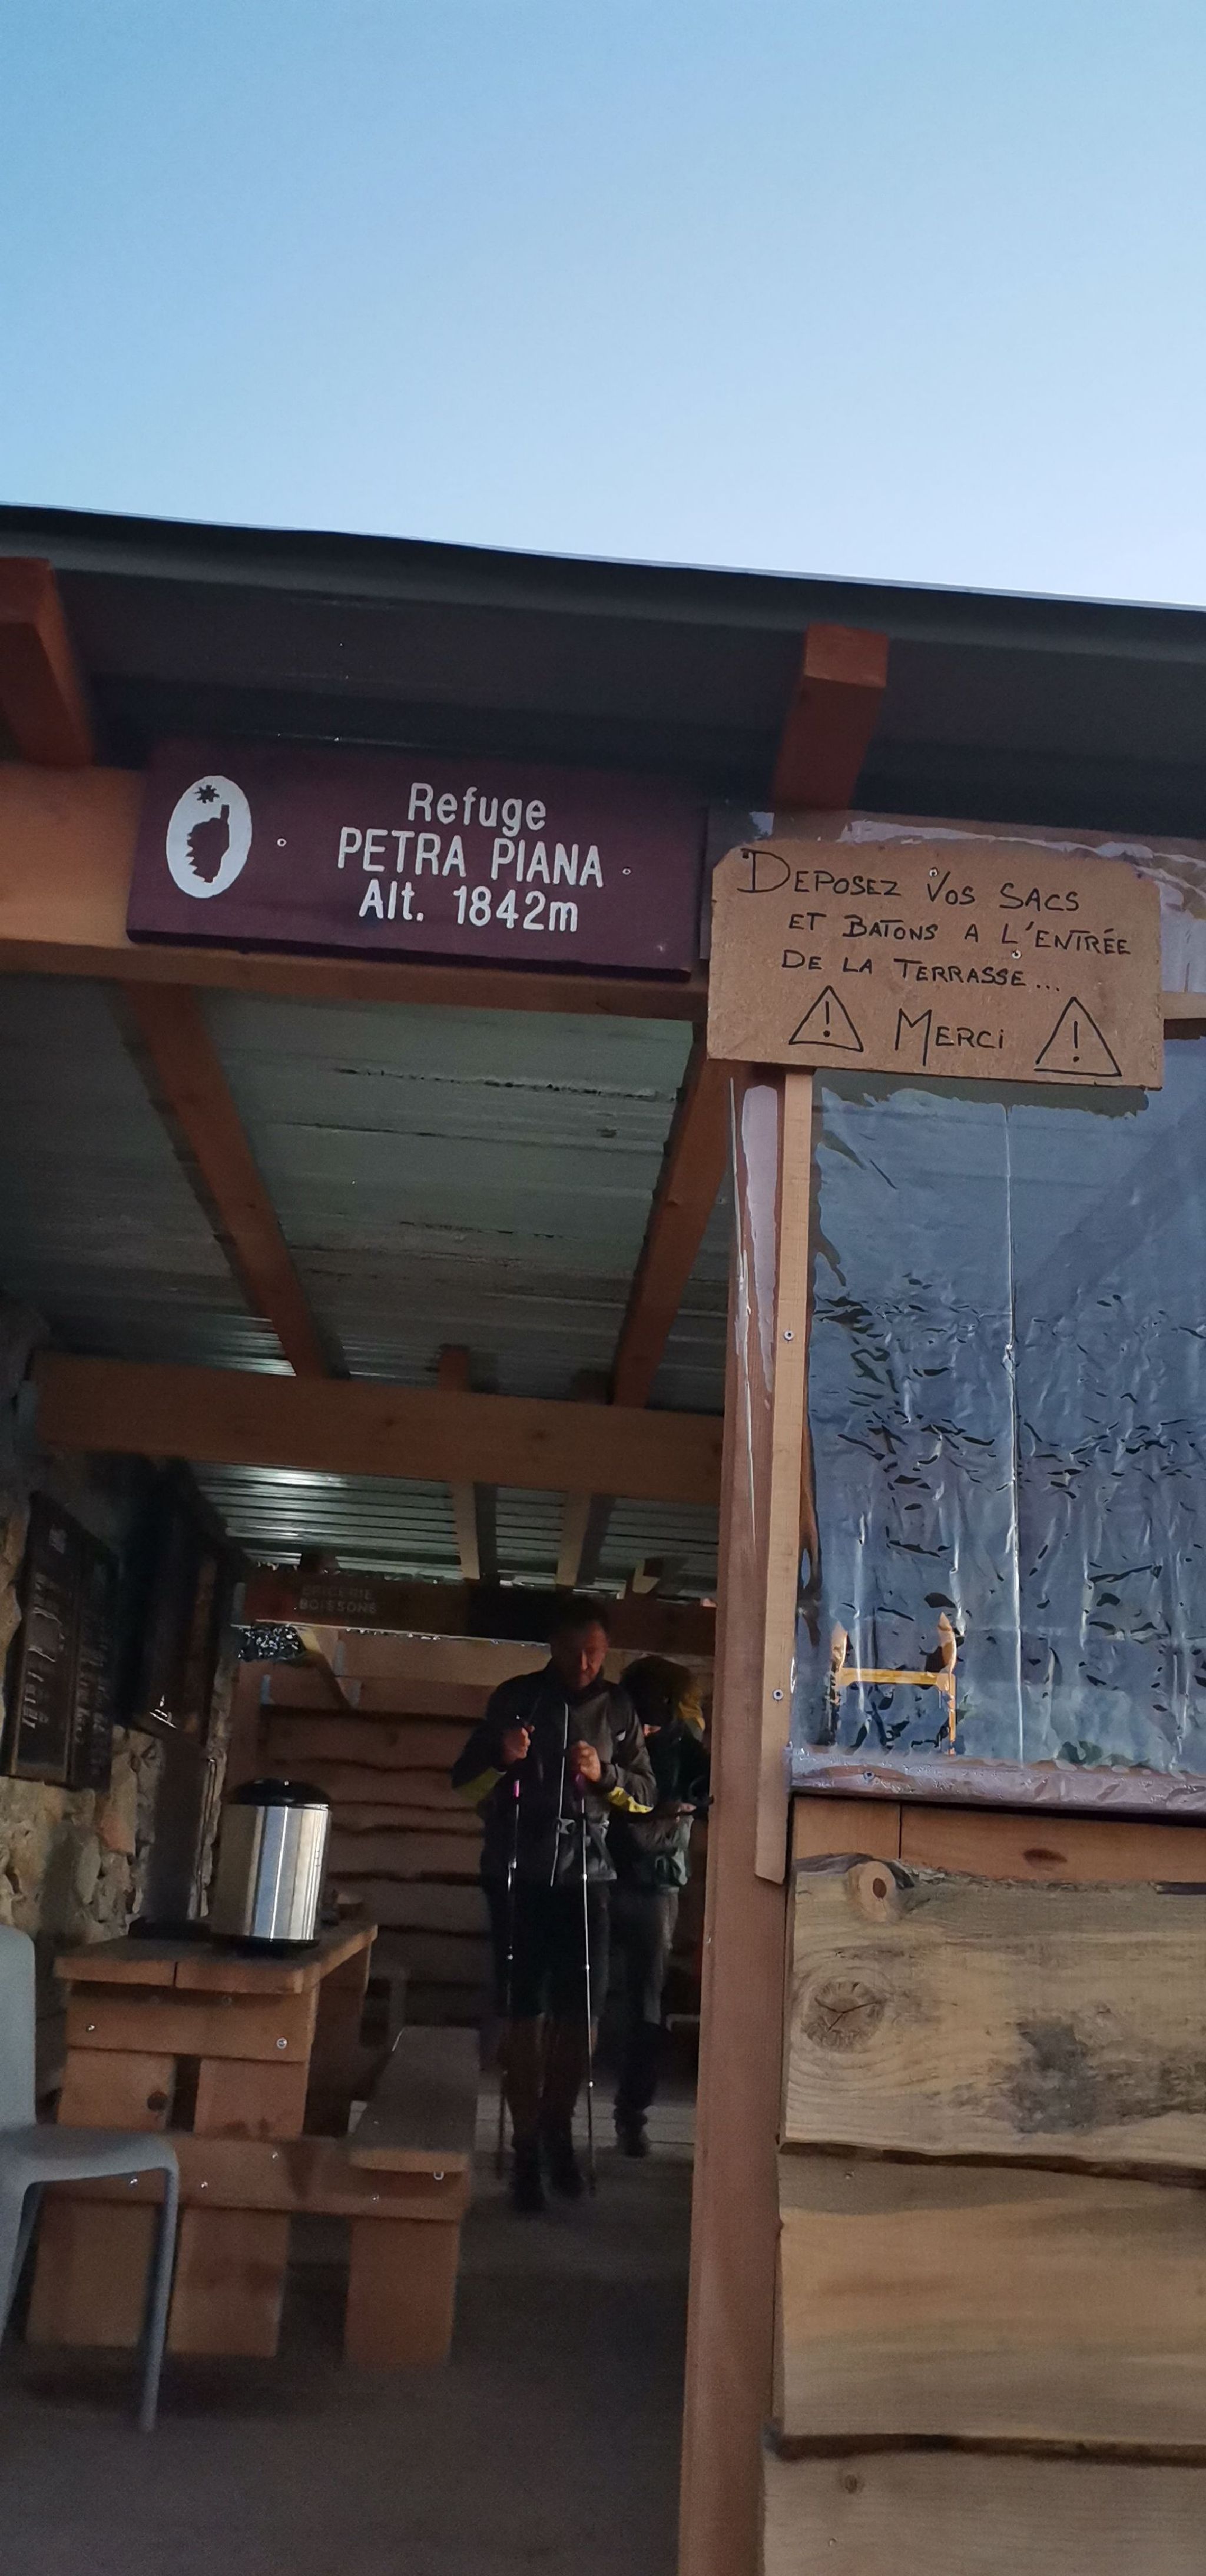 Refuge
PETRA PIANA
Alt. 1842m
DEPOSEZ VOS SACS
ET BATONS A L'ENTRÉE
DE LA TERRASSE...
! MERCI !
EPICERIE
BOISSONS